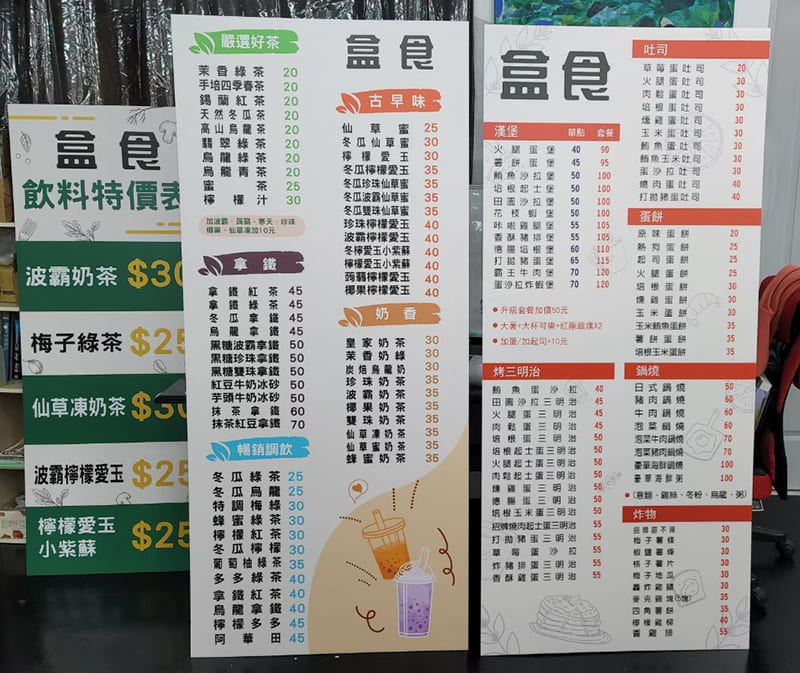 盒食
飲料特價表
波霸奶茶 $30
梅子綠茶 $25
仙草凍奶茶 $30
波霸檸檬愛玉 $25
檸檬愛玉
小紫蘇 $25
嚴選好茶
茉香綠茶 20
手培四季春茶 20
錫蘭紅茶 20
天然冬瓜茶 20
高山烏龍茶 20
翡翠綠茶 20
烏龍綠茶 20
烏龍青茶 20
蜜茶 25
檸檬汁 30
加波霸、蒟蒻、寒天、珍珠
椰果、仙草凍加10元
拿鐵
拿鐵紅茶 45
拿鐵綠茶 45
冬瓜拿鐵 45
烏龍拿鐵 45
黑糖波霸拿鐵 50
黑糖珍珠拿鐵 50
黑糖雙珠拿鐵 50
紅豆牛奶冰砂 50
芋頭牛奶冰砂 50
抹茶拿鐵 60
抹茶紅豆拿鐵 70
暢銷調飲
冬瓜綠茶 25
冬瓜烏龍 25
特調梅綠 30
蜂蜜綠茶 30
檸檬紅茶 30
冬瓜檸檬 30
葡萄柚綠茶 35
多多綠茶 40
拿鐵紅茶 40
烏龍拿鐵 40
檸檬多多 45
阿華田 45
盒食
古早味
仙草蜜 25
冬瓜仙草蜜 30
檸檬愛玉 30
冬瓜檸檬愛玉 35
冬瓜珍珠仙草蜜 35
冬瓜波霸仙草蜜 35
冬瓜雙珠仙草蜜 35
珍珠檸檬愛玉 40
波霸檸檬愛玉 40
冬檸愛玉小紫蘇 40
檸檬愛玉小紫蘇 40
蒟蒻檸檬愛玉 40
椰果檸檬愛玉 40
奶香
皇家奶茶 30
茉香奶綠 30
炭焙烏龍奶 30
珍珠奶茶 35
波霸奶茶 35
椰果奶茶 35
雙珠奶茶 35
仙草凍奶茶 35
仙草蜜奶茶 35
蜂蜜奶茶 35
盒食
漢堡 單點 套餐
火腿蛋堡 40 90
薯餅蛋堡 45 95
鮪魚沙拉堡 50 100
培根起士堡 50 100
田園沙拉堡 50 100
花枝蝦堡 50 100
咔啦雞腿堡 55 105
香酥豬排堡 55 105
德腸培根堡 60 110
打拋豬蛋堡 65 115
霸王牛肉堡 70 120
蛋沙拉炸蝦堡 70 120
●升級套餐加價50元
●大薯+大杯可樂+紅龍雞塊X2
●加蛋/加起司+10元
烤三明治
鮪魚蛋沙拉 40
田園沙拉三明治 45
火腿蛋三明治 45
肉鬆蛋三明治 45
培根蛋三明治 50
培根起士蛋三明治 50
火腿起士蛋三明治 50
肉鬆起士蛋三明治 50
燻雞蛋三明治 50
德腸蛋三明治 50
培根玉米蛋三明治 50
招牌燒肉起士蛋三明治 55
打拋豬蛋三明治 55
草莓蛋沙拉 55
炸豬排蛋三明治 55
香酥雞蛋三明治 55
吐司
草莓蛋吐司 20
火腿蛋吐司 30
肉鬆蛋吐司 30
培根蛋吐司 30
燻雞蛋吐司 30
玉米蛋吐司 30
鮪魚蛋吐司 30
鮪魚玉米吐司 30
蛋沙拉吐司 30
燒肉蛋吐司 40
打拋豬蛋吐司 40
蛋餅
原味蛋餅 20
熱狗蛋餅 25
起司蛋餅 25
火腿蛋餅 25
培根蛋餅 30
燻雞蛋餅 30
玉米蛋餅 30
玉米鮪魚蛋餅 35
薯餅蛋餅 35
培根玉米蛋餅 35
鍋燒
日式鍋燒 50
豬肉鍋燒 60
牛肉鍋燒 60
泡菜鍋燒 60
泡菜牛肉鍋燒 70
泡菜豬肉鍋燒 70
豪華海鮮鍋燒 100
豪華海鮮粥 100
●(意麵、雞絲、冬粉、烏龍、粥)
炸物
招牌甜不辣 30
梅子薯條 30
椒鹽薯條 30
格子薯片 30
梅子地瓜 30
轟炸雞腿 30
麥克雞塊(5塊) 30
四角薯餅 30
檸檬雞柳 40
香雞排 55